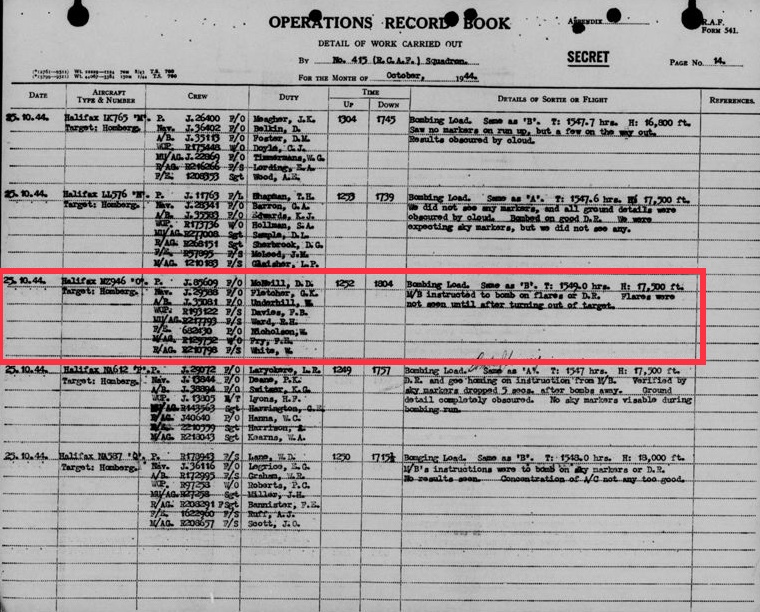 OPERATIONS RECORD BOOK
APPENDIX
R.A.F.
FORM 541.
DETAIL OF WORK CARRIED OUT
BY No. 415 (R.C.A.F.) Squadron.
SECRET
PAGE No. 14.
FOR THE MONTH OF October, 1944.
DATE AIRCRAFT TYPE & NUMBER CREW DUTY TIME UP DOWN DETAILS OF SORTIE OR FLIGHT REFERENCES.
25.10.44. Halifax LK765 "M". P. J.26400 F/O Meagher, J.K. 1304 1745 Bombing Load. Same as "B". T: 1547.7 hrs. H: 16,800 ft.
Target: Homberg. Nav. J.36402 F/O Belkin, D. Saw no markers on run up, but a few on the way out.
A/B. J.35113 F/O Foster, D.M. Results obscured by cloud.
WOP. R175448 W/O Doyle, C.J.
MU/AG. J.22869 F/O Timmermans, W.G.
R/AG. R216266 F/S Lording, E.A.
F/E. 1208353 Sgt Wood, A.E.
25.10.44. Halifax LL576 "N". P. J.11763 F/L Shapman, T.H. 1253 1739 Bombing Load. Same as "A". T: 1547.6 hrs. H: 17,500 ft.
Target: Homberg. Nav. J.28341 F/O Barron, G.A. We did not see any markers, and all ground details were
A/B. J.35583 F/O Edwards, K.J. obsoured by cloud. Bombed on good D.R. We were
WOP. R175736 W/O Hollman, S.A. expecting sky markers, but we did not see any.
MU/AG. R277008 Sgt Semple, D.L.
R/AG. R268151 Sgt Sherbrook, D.G.
F/E. R57895 F/S McLeod, J.M.
M/AG. 1210183 F/S L.P.
25.10.44. Halifax MZ946 "O". P. J.85609 F/O McNeill, D.D. 1252 1804 Bombing Load. Same as "B". T: 1549.0 hrs. H: 17,500 ft.
Target: Homberg. Nav. J.29588 F/O Fletcher, G.K. M/B instructed to bomb on flares or D.R. Flares were
A/B. J.35081 F/O Underhill, not seen until after turning out of target.
WOP. R193122 F/S Davies, F.B.
MU/AG. R217793 F/S Ward, R.H.
F/E. 682430 F/S Nicholson, W.
R/AG. R129752 W/O Fry, F.H.
M/AG. R210798 F/S White, W.
25.10.44. Halifax NA612 "P". P. J.29072 F/O Laryckere, L.R. 1249 1757 Bombing Load. Same as "A". T: 1547 hrs. H: 17,500 ft.
Target: Homberg. Nav. J.13844 F/O Deane, P.K. D.R. and gee homing on instruction from M/B. Verified by
A/B. J.38894 F/O Switzer, K.G. sky markers dropped 5 secs. after bombs away. Ground
WOP. J.13805 Lyons, H.F. detail completely obscured. No sky markers visable during
MU/AG. R143563 Sgt Harrington, bombing run.
R/AG. J40640 F/O Hanna, W.C.
F/E. 2210559 Sgt Harrison,
M/AG. R218043 Sgt Kearns, W.A.
25.10.44. Halifax NA587 "Q". P. R178943 F/S Lane, W.D. 1250 1715 Bonging Load. Same as "B". T: 1548.0 hrs. H: 18,000 ft.
Target: Homberg. Nav. J.36116 F/O Legrice, E.G. M/B's instructions were to bomb on sky markers or D.R.
A/B. R172995 F/S Graham, W.R. No results seen. Concentration of A/C not any too good.
WOP. R97258 W/O Roberts, P.C.
MU/AG. R27258 Sgt Miller, J.H.
R/AG. R208291 FSgt Bannister, F.E.
F/E. 1622960 F/S Ruff, A.J.
M/AG. R208657 F/S Scott, J.O.